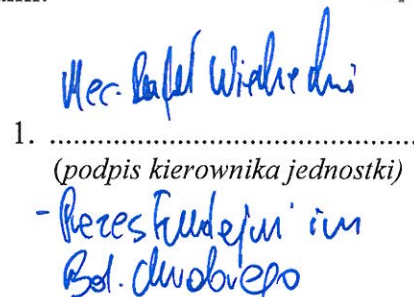 Mec. Rafał Wiechecki
1. ........................................
(podpis kierownika jednostki)
- Prezes Fundacji im
Bol. Chrobrego